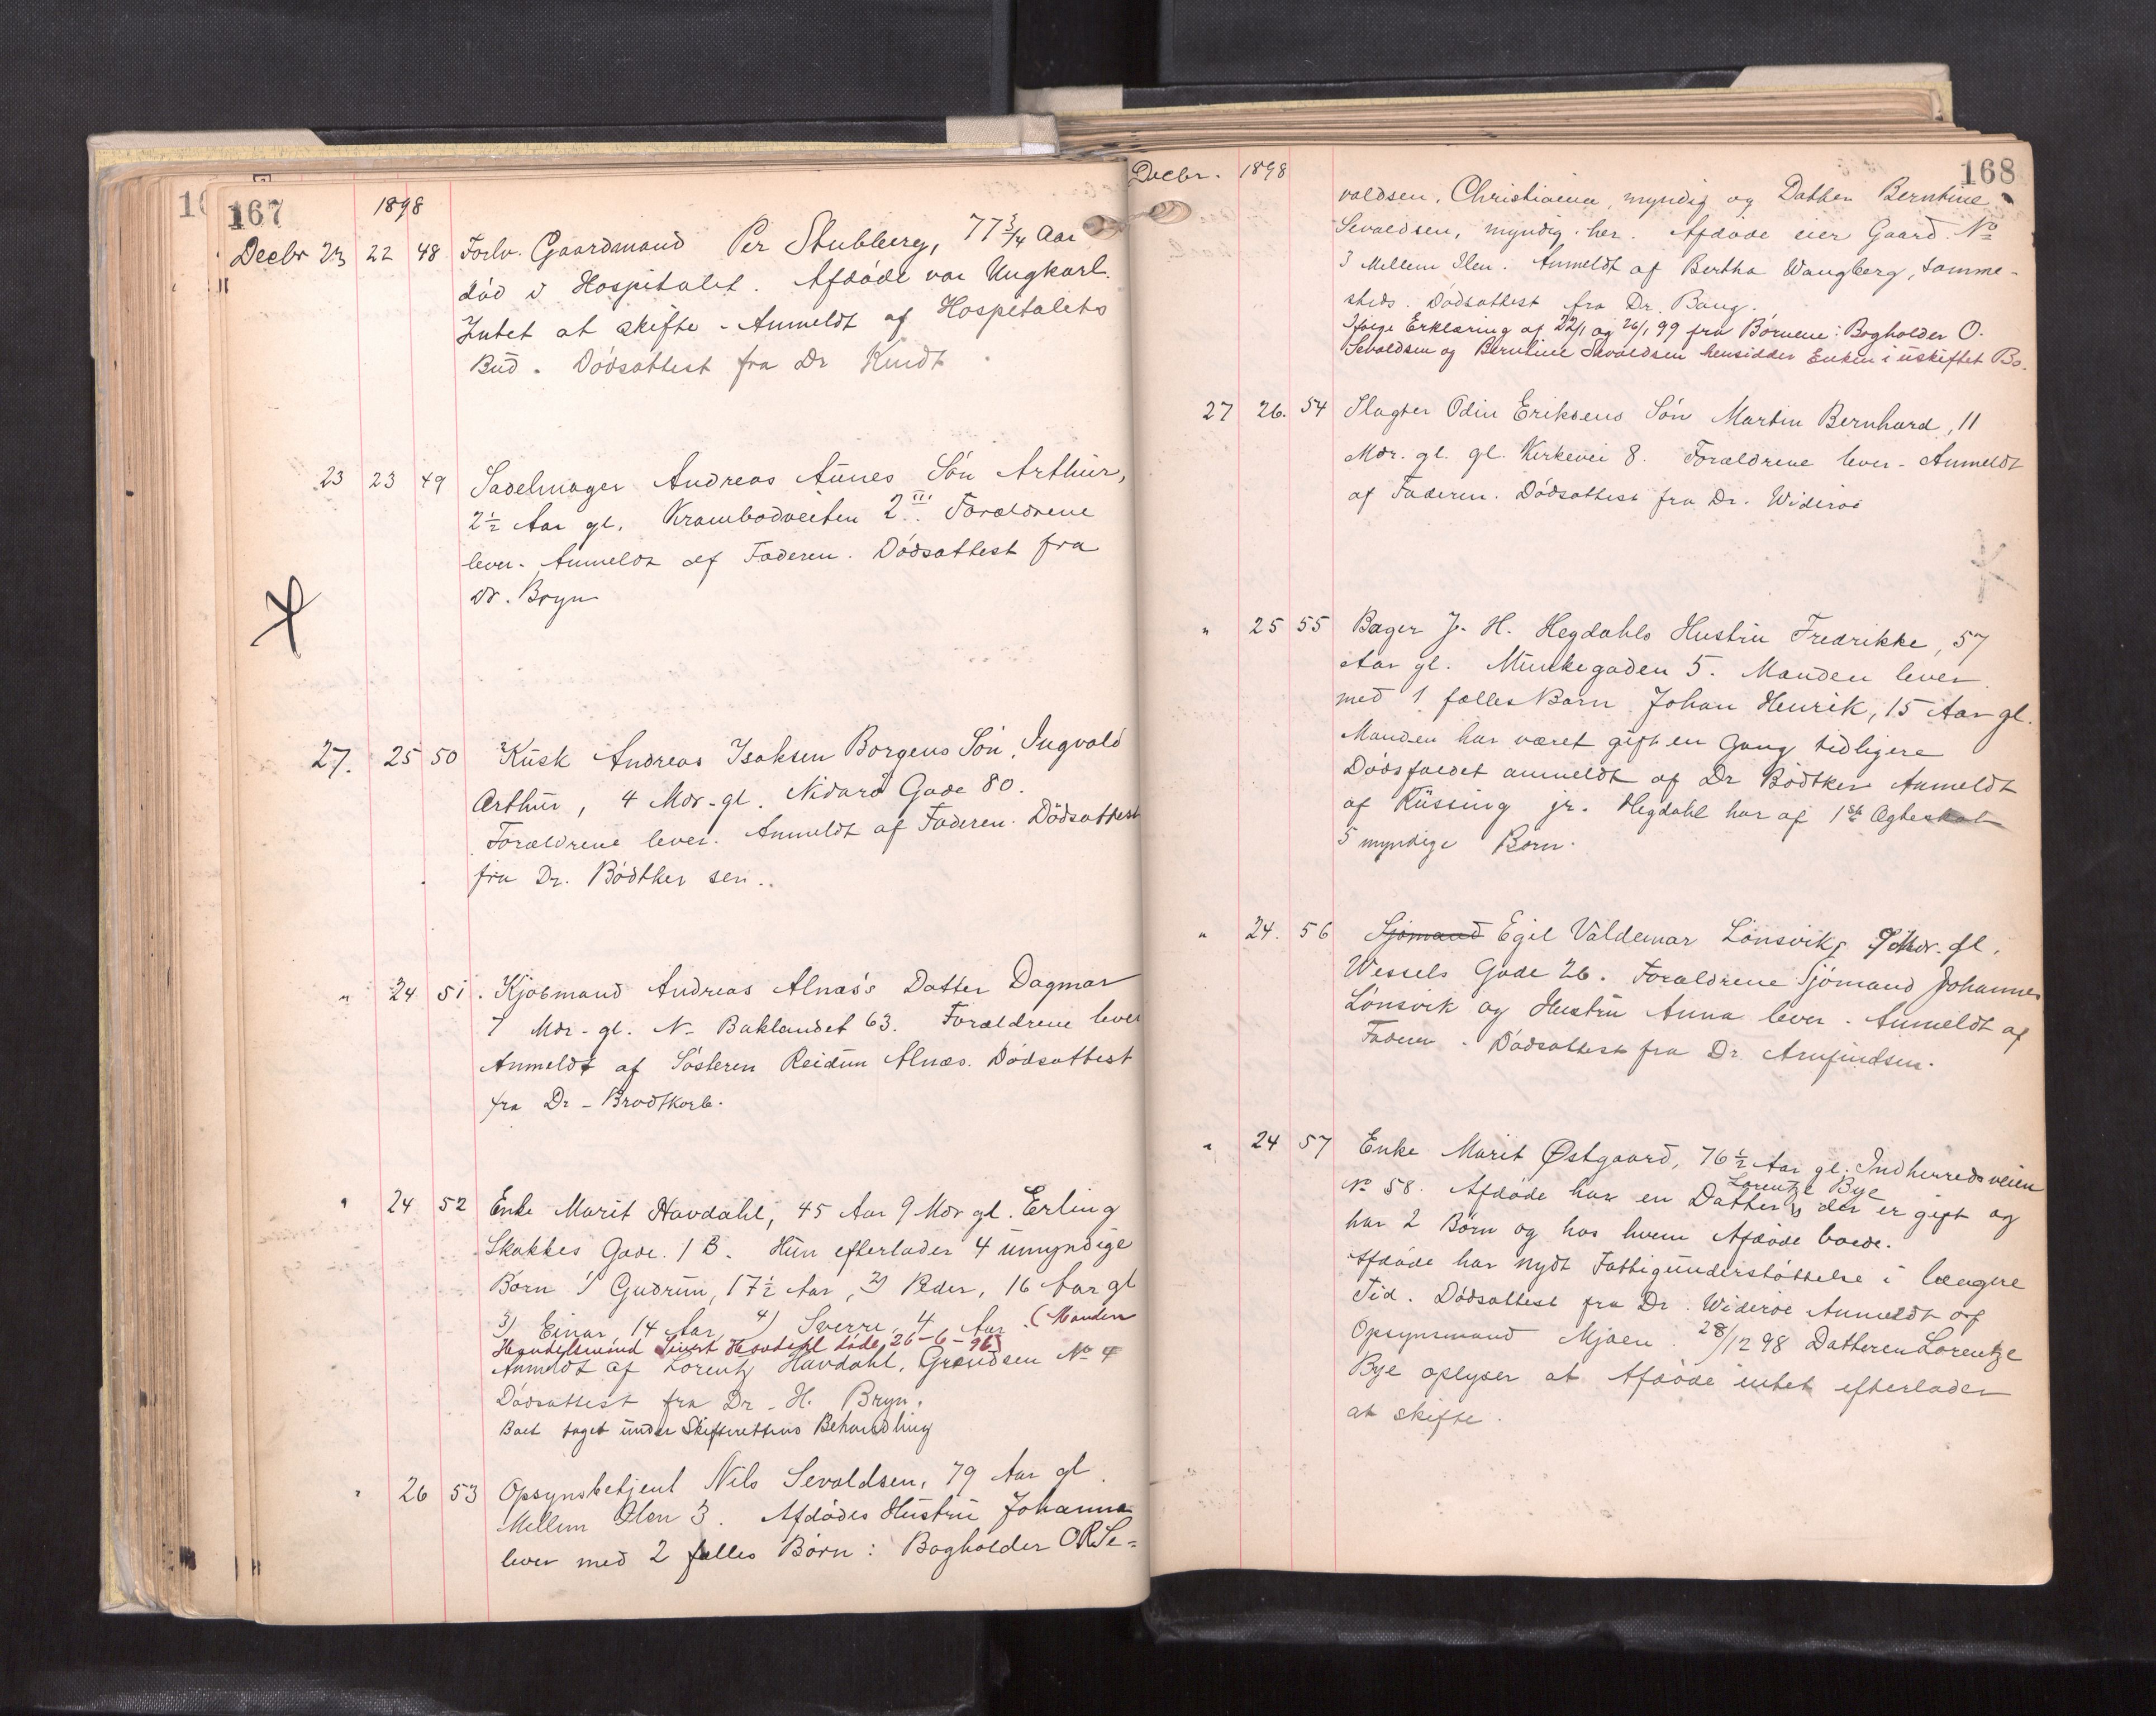 167
1898
Decbr 23 22 48 Forhv. Gaardmand Per Stubberg, 77 3/4 Aar
död i Hospitalet. Afdöde var Ungkarl.
Intet at skifte - Anmeldt af Hospitalets
Bud. Dödsattest fra Dr Kindt
23 23 49 Sadelmager Andreas Aunes Sön Arthur,
2 1/2 Aar gl. Krambodveiten 2 III. Forældrene
lever. Anmeldt af Faderen. Dödsattest fra
Dr. Bryn
27. 25 50 Kusk Andreas Isaksen Borgens Sön, Ingvald
Arthur, 4 Mdr. gl. Nidarö Gade 80.
Forældrene lever. Anmeldt af Faderen. Dödsattest
fra Dr. Bödtker sen..
" 24 51. Kjöbmand Andreas Alnæs's Datter Dagmar
7 Mdr. gl. N. Baklandet 63. Forældrene lever
Anmeldt af Sösteren Reidun Alnæs. Dödsattest
fra Dr - Brodtkorb.
" 24 52 Enke Marit Havdahl, 45 Aar 9 Mdr gl. Erling
Skakkes Gade. 1 B. Hun efterlader 4 umyndige
Börn 1) Gudrun, 17 1/2 Aar, 2) Peder, 16 Aar gl
3) Einar, 14 Aar, 4) Sverre, 4 Aar. (Manden
Handelsmand Sivert Havdahl döde 26-6-96)
Anmeldt af Lorentz Havdahl, Grændsen No 4
Dödsattest fra Dr. H. Bryn.
Boet taget under Skifterettens Behandling
" 26 53 Opsynsbetjent Nils Sevaldsen, 79 Aar gl.
Mellem Ilen 3. Afdödes Hustru Johanna
lever med 2 fælles Börn: Bogholder O R Se-
168
Decbr. 1898
valdsen, Christiania, myndig og Datter Berntine
Sevaldsen, myndig. her. Afdöde eier Gaard No
3 Mellem Ilen. Anmeldt af Bertha Wangberg, samme-
steds. Dödsattest fra Dr. Bang.
Ifölge Erklæring af 22/1 og 26/1 99 fra Börnene: Bogholder O.
Sevaldsen og Berntine Sevaldsen hensidder Enken i uskiftet Bo.
27 26. 54 Slagter Odin Eriksens Sön Martin Bernhard, 11
Mdr. gl. gl. Kirkevei 8. Forældrene lever. Anmeldt
af Faderen. Dödsattest fra Dr. Wideröe
" 25 55 Bager J. H. Hegdahls Hustru Fredrikke, 57
Aar gl. Munkegaden 5. Manden lever
med 1 fælles Barn Johan Henrik, 15 Aar gl.
Manden har været gift en Gang tidligere
Dödsfaldet anmeldt af Dr Bödtker Anmeldt
af Küssing jr. Hegdahl har af 1ste Ægteskab
5 myndige Börn.
" 24. 56 Sjömand Egil Valdemar Lönsvik, 9 Mdr. gl.
Wessels Gade 26. Forældrene Sjömand Johannes
Lönsvik og Hustru Anna lever. Anmeldt af
Faderen. Dödsattest fra Dr. Arnfindsen.
" 24 57 Enke Marit Østgaard, 76 1/2 Aar gl. Indherredsveien
No 58. Afdöde har en Datter Lorentze Bye der er gift og
har 2 Börn og hos hvem Afdöde boede.
Afdöde har nydt Fattigunderstöttelse i længere
Tid. Dödsattest fra Dr. Wideröe Anmeldt af
Opsynsmand Mjøen. 28/12 98 Datteren Lorentze
Bye oplyser at Afdöde intet efterlader
at skifte.